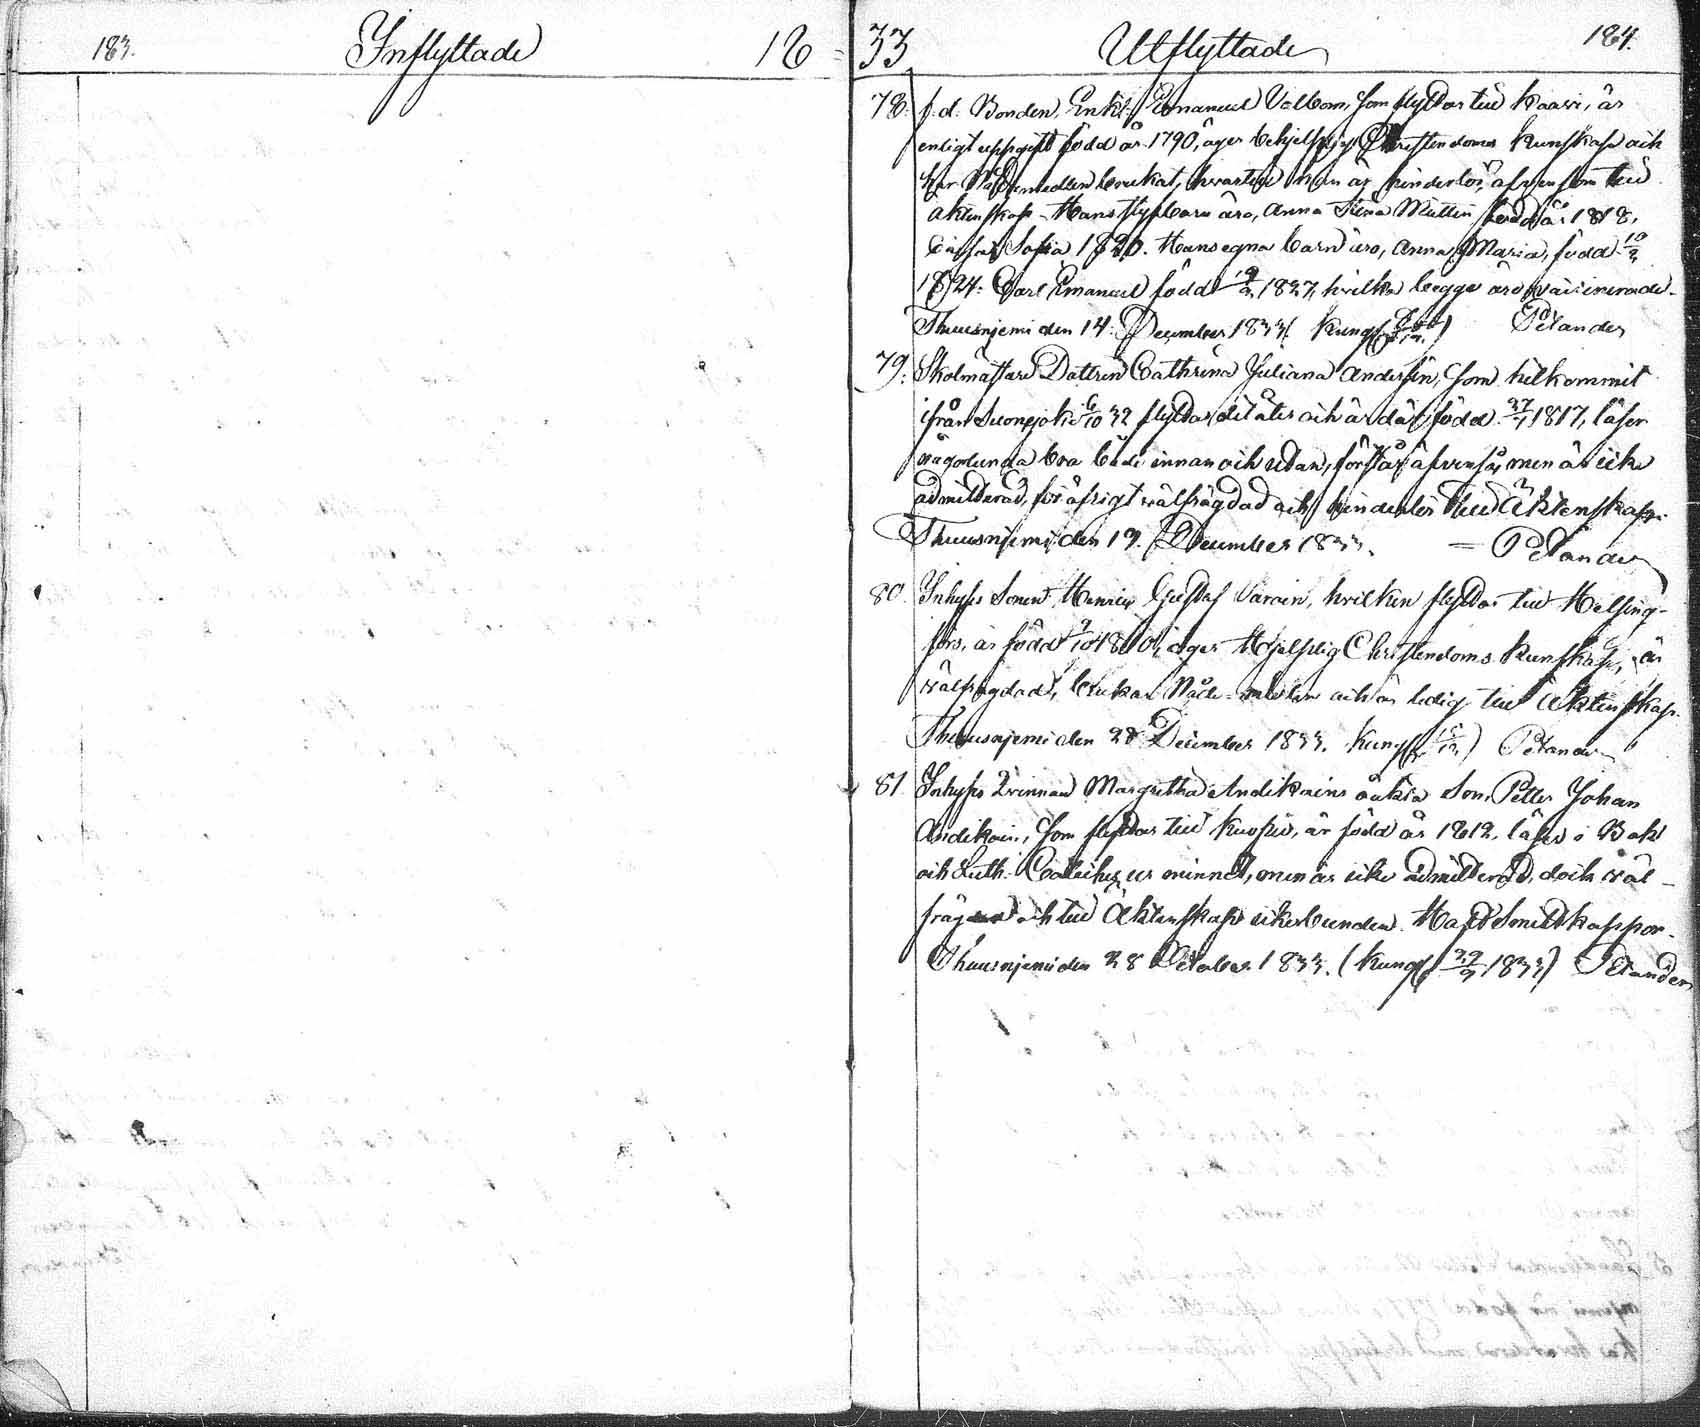 183.
Inflyttade
18
33
Utflyttade
184.
78. f. d. Bonden, Enkl. Emanuel Volbom, som flyttar till Kaavi, är
enligt uppgift född år 1790, äger behjelplig Christendoms kunskap och
har Nådemedlen brukat, hvartill han är hinderlös, äfvensom till
äktenskap. Hans styfbarn äro, Anna Stina Muttin född år 1818,
Sofia 1820. Hans egna barn äro, Anna Maria, född 10/2
1824. Carl Emanuel född 1827, hvilka begge äro vaccinerade.
Thuusnjemi den 14. December 1833. Kungf. Petander
79. Skolmästare Dottren Cathrina Juliana Andersin, som tilkommit
ifrån Suonejoki 6/10 32 flyttar dit åter och är där född 27/1 1817, läser
någorlunda bra både innan och utan, förstår äfvenså, men är icke
admitterad, för öfrigt välfrägdad och hinderlös till Äktenskap.
Thuusnjemi den 19. December 1833. = Petander
80. Inhyses Sonen, Henric Gustaf Väräin, hvilken flyttar till Helsing-
fors, är född 9/10 1810, äger Hjelplig Christendoms kunskap, är
välfrägdad, brukar Nåde-medlen och är ledig till Äktenskap.
Thuusnjemi den 28 December 1833. Kungf. Petander
81. Inhyses Qvinnan Margretha Andikains oäkta Son, Petter Johan
Andikain, som flyttar till Kuopio, är född år 1812. läser i Bok
och Luth. Cateches ur minnet, men är icke admitterad, dock väl-
och till Äktenskap icke bunden. Haft Smittkoppor.
Thuusnjemi den 28 October 1833. (Kungf. 22/9 1833) Petander